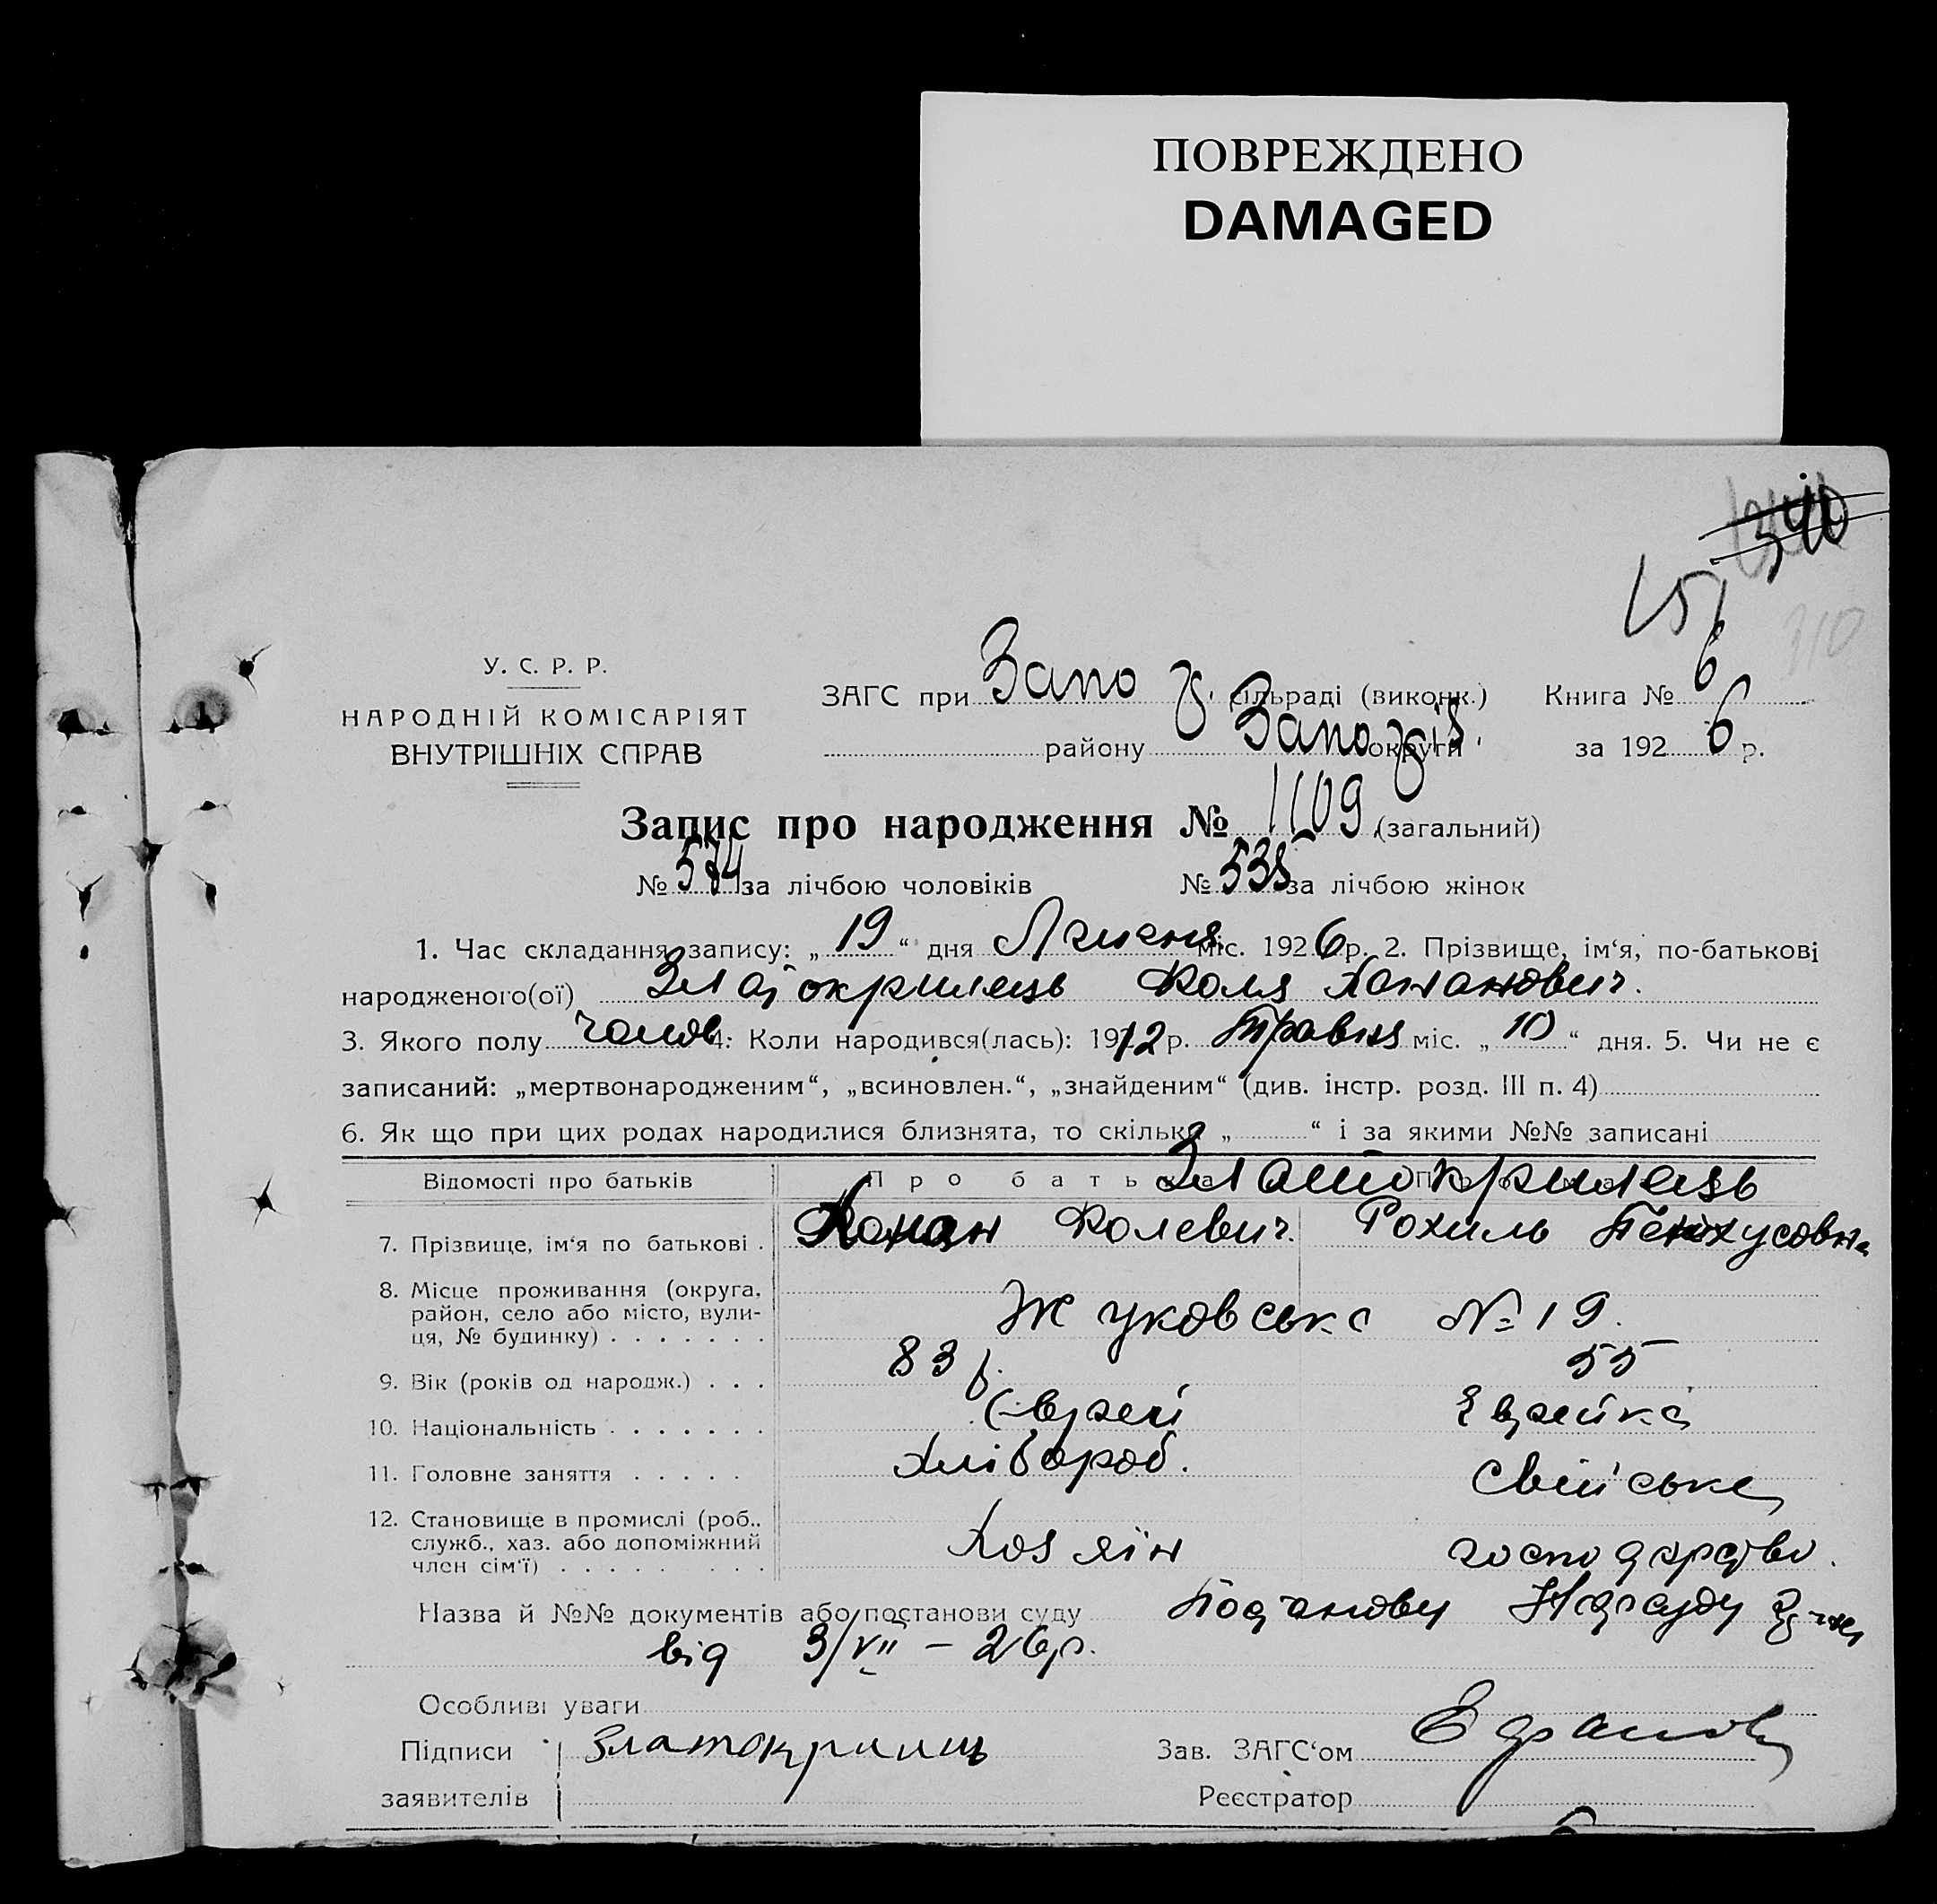 ПОВРЕЖДЕНО
DAMAGED
340
151
310
У. С. Р. Р.
НАРОДНІЙ КОМІСАРІЯТ
ВНУТРІШНІХ СПРАВ
ЗАГС при Запо сільраді (виконк.) Книга № 6
району Запоріз. округи за 1926 р.
Запис про народження № 1109 (загальний)
№ 574 за лічбою чоловіків № 535 за лічбою жінок
1. Час складання запису: „19“ дня Липня міс. 1926 р. 2. Прізвище, ім‘я, по-батькові
народженого(ої) Златокрилець Фоля Хананович.
3. Якого полу чолов 4. Коли народився(лась): 1912 р. Травня міс. „10“ дня. 5. Чи не є
записаний: „мертвонародженим“, „всиновлен.“, „знайденим“ (див. інстр. розд. III п. 4)
6. Як що при цих родах народилися близнята, то скільки „ “ і за якими №№ записані
Відомості про батьків Про батька Златокрилець
7. Прізвище, ім‘я по батькові . Ханан Фолевич. Рохиль Пенхусовна
8. Місце проживання (округа, район, село або місто, вулиця, № будинку) . . . . . . . Жуковська № 19.
9. Вік (років од народж.) . . . 83 р. 55
10. Національність . . . . . . . Єврей Єврейка
11. Головне заняття . . . . . Хлібороб. Свійське
12. Становище в промислі (роб., служб., хаз. або допоміжний член сім‘ї) . . . . . . . . Хозяїн господарство.
Назва й №№ документів або постанови суду Постанову Нарсуду
від 3/VII – 26 р.
Особливі уваги
Підписи Златокрилець Зав. ЗАГС‘ом
заявителів Реєстратор